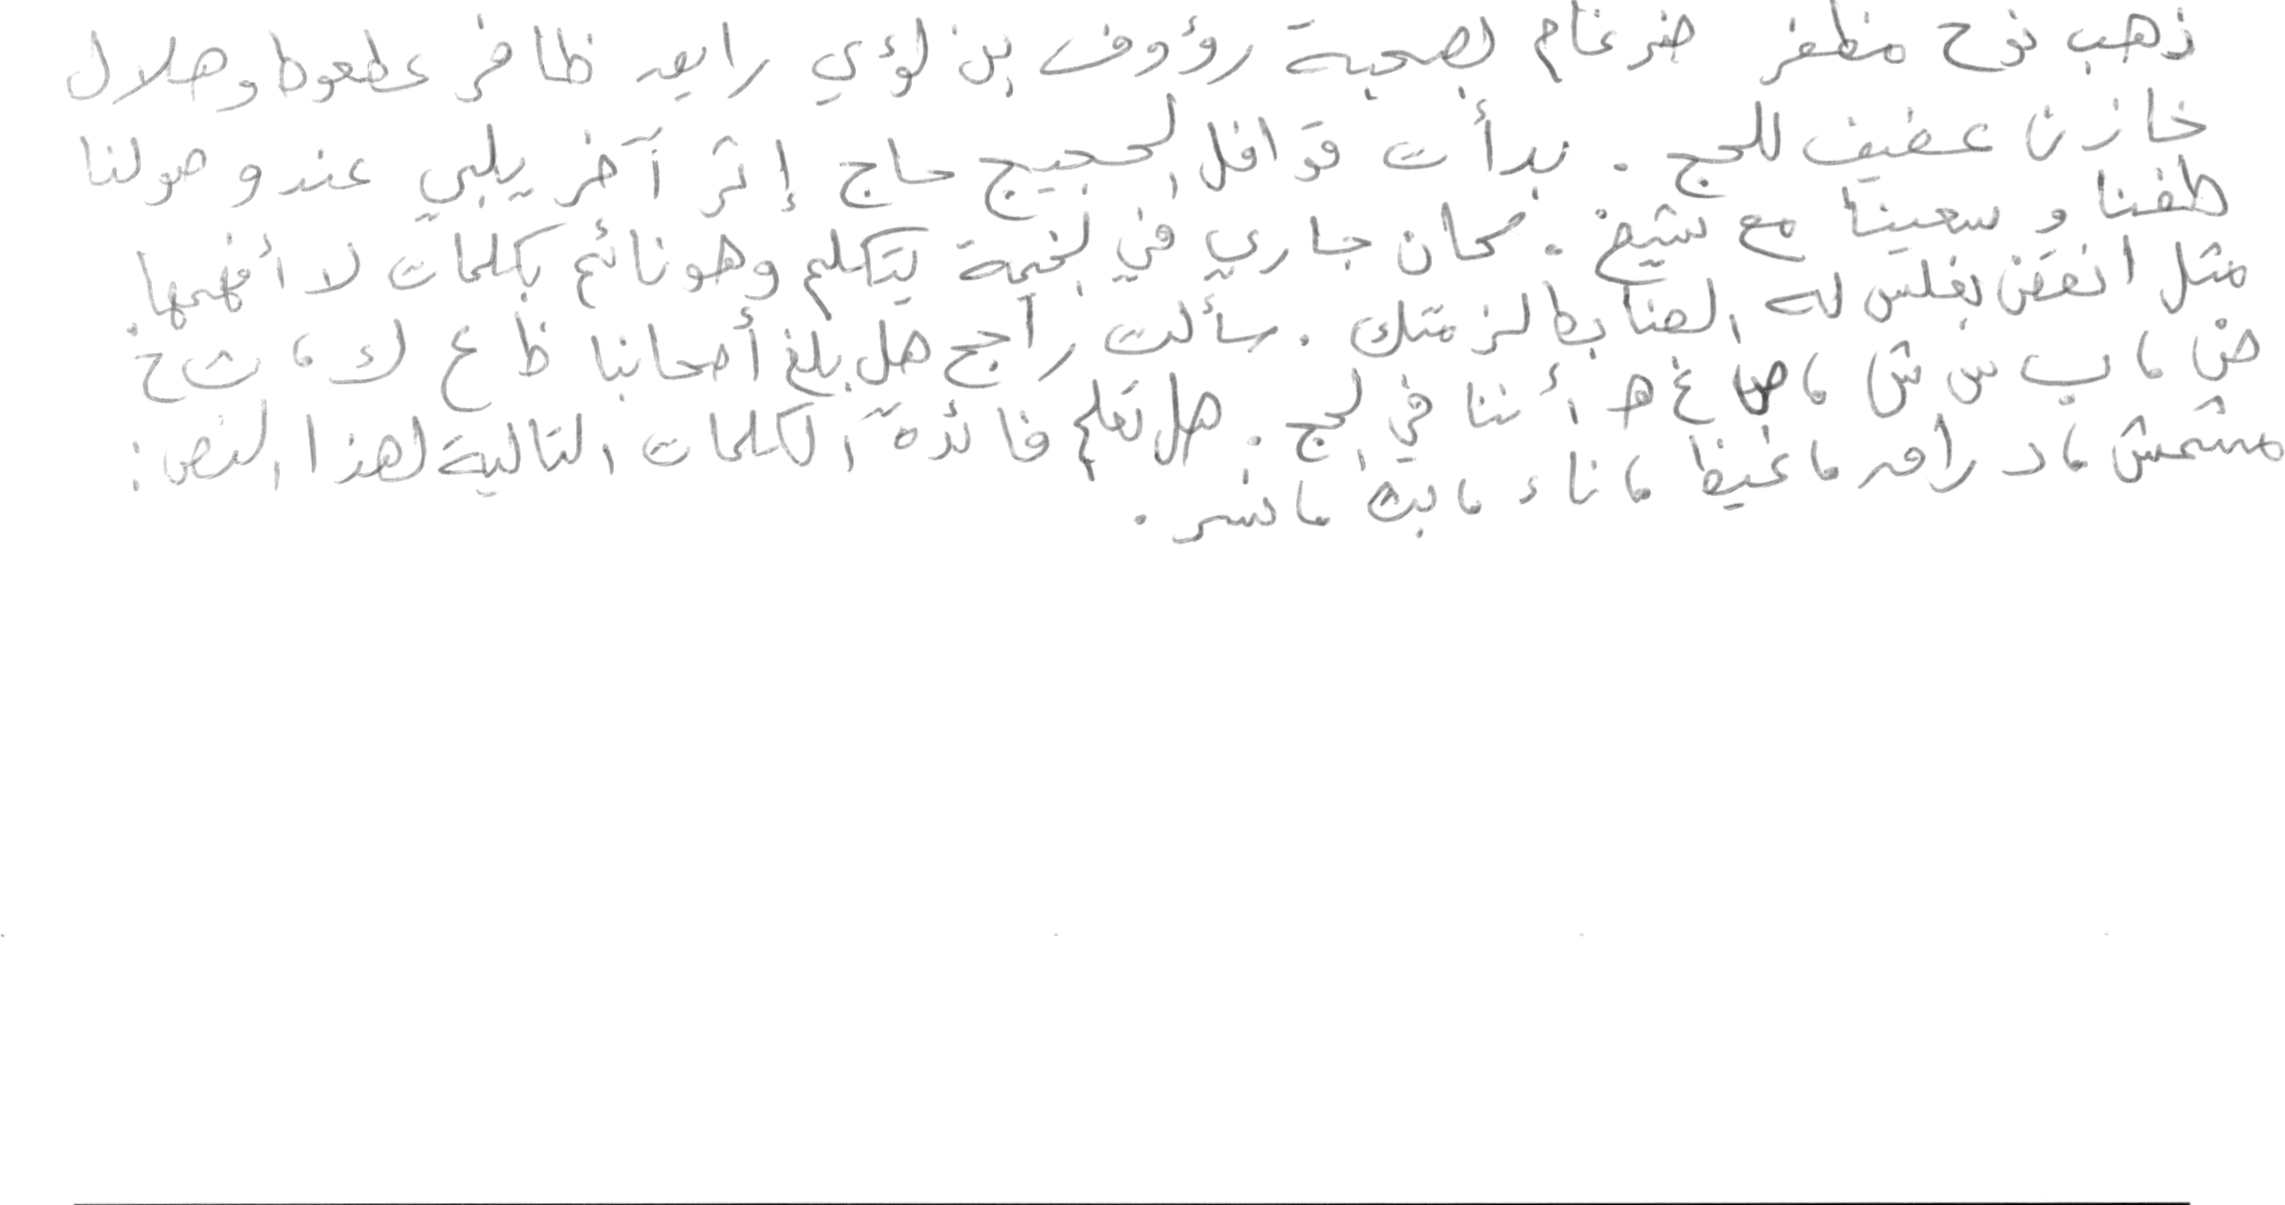 ذهب نوح مظفر ضرغام بصحبة رؤوف بن لؤي رايق ظافر عطعوط وهلال
خازن عفيف للحج . بدأت قوافل الحجيج حاج إثر آخر يلبي عند وصولنا
طفنا و سعينا مع شيخ . كان جاري في الخيمة يتكلم وهو نائم بكلمات لا أفهمها
مثل انفقن بفلس له الضابط لزمتك . سألت راجح هل بلغ أصحابنا ظ ع ك ، ث خ
ض ، ب س ش ، ص غ هـ أننا في الحج . هل تعلم فائدة الكلمات التالية لهذا النص :
مشمش ، دراق ، غيظ ، ناء ، بث ، نسر .